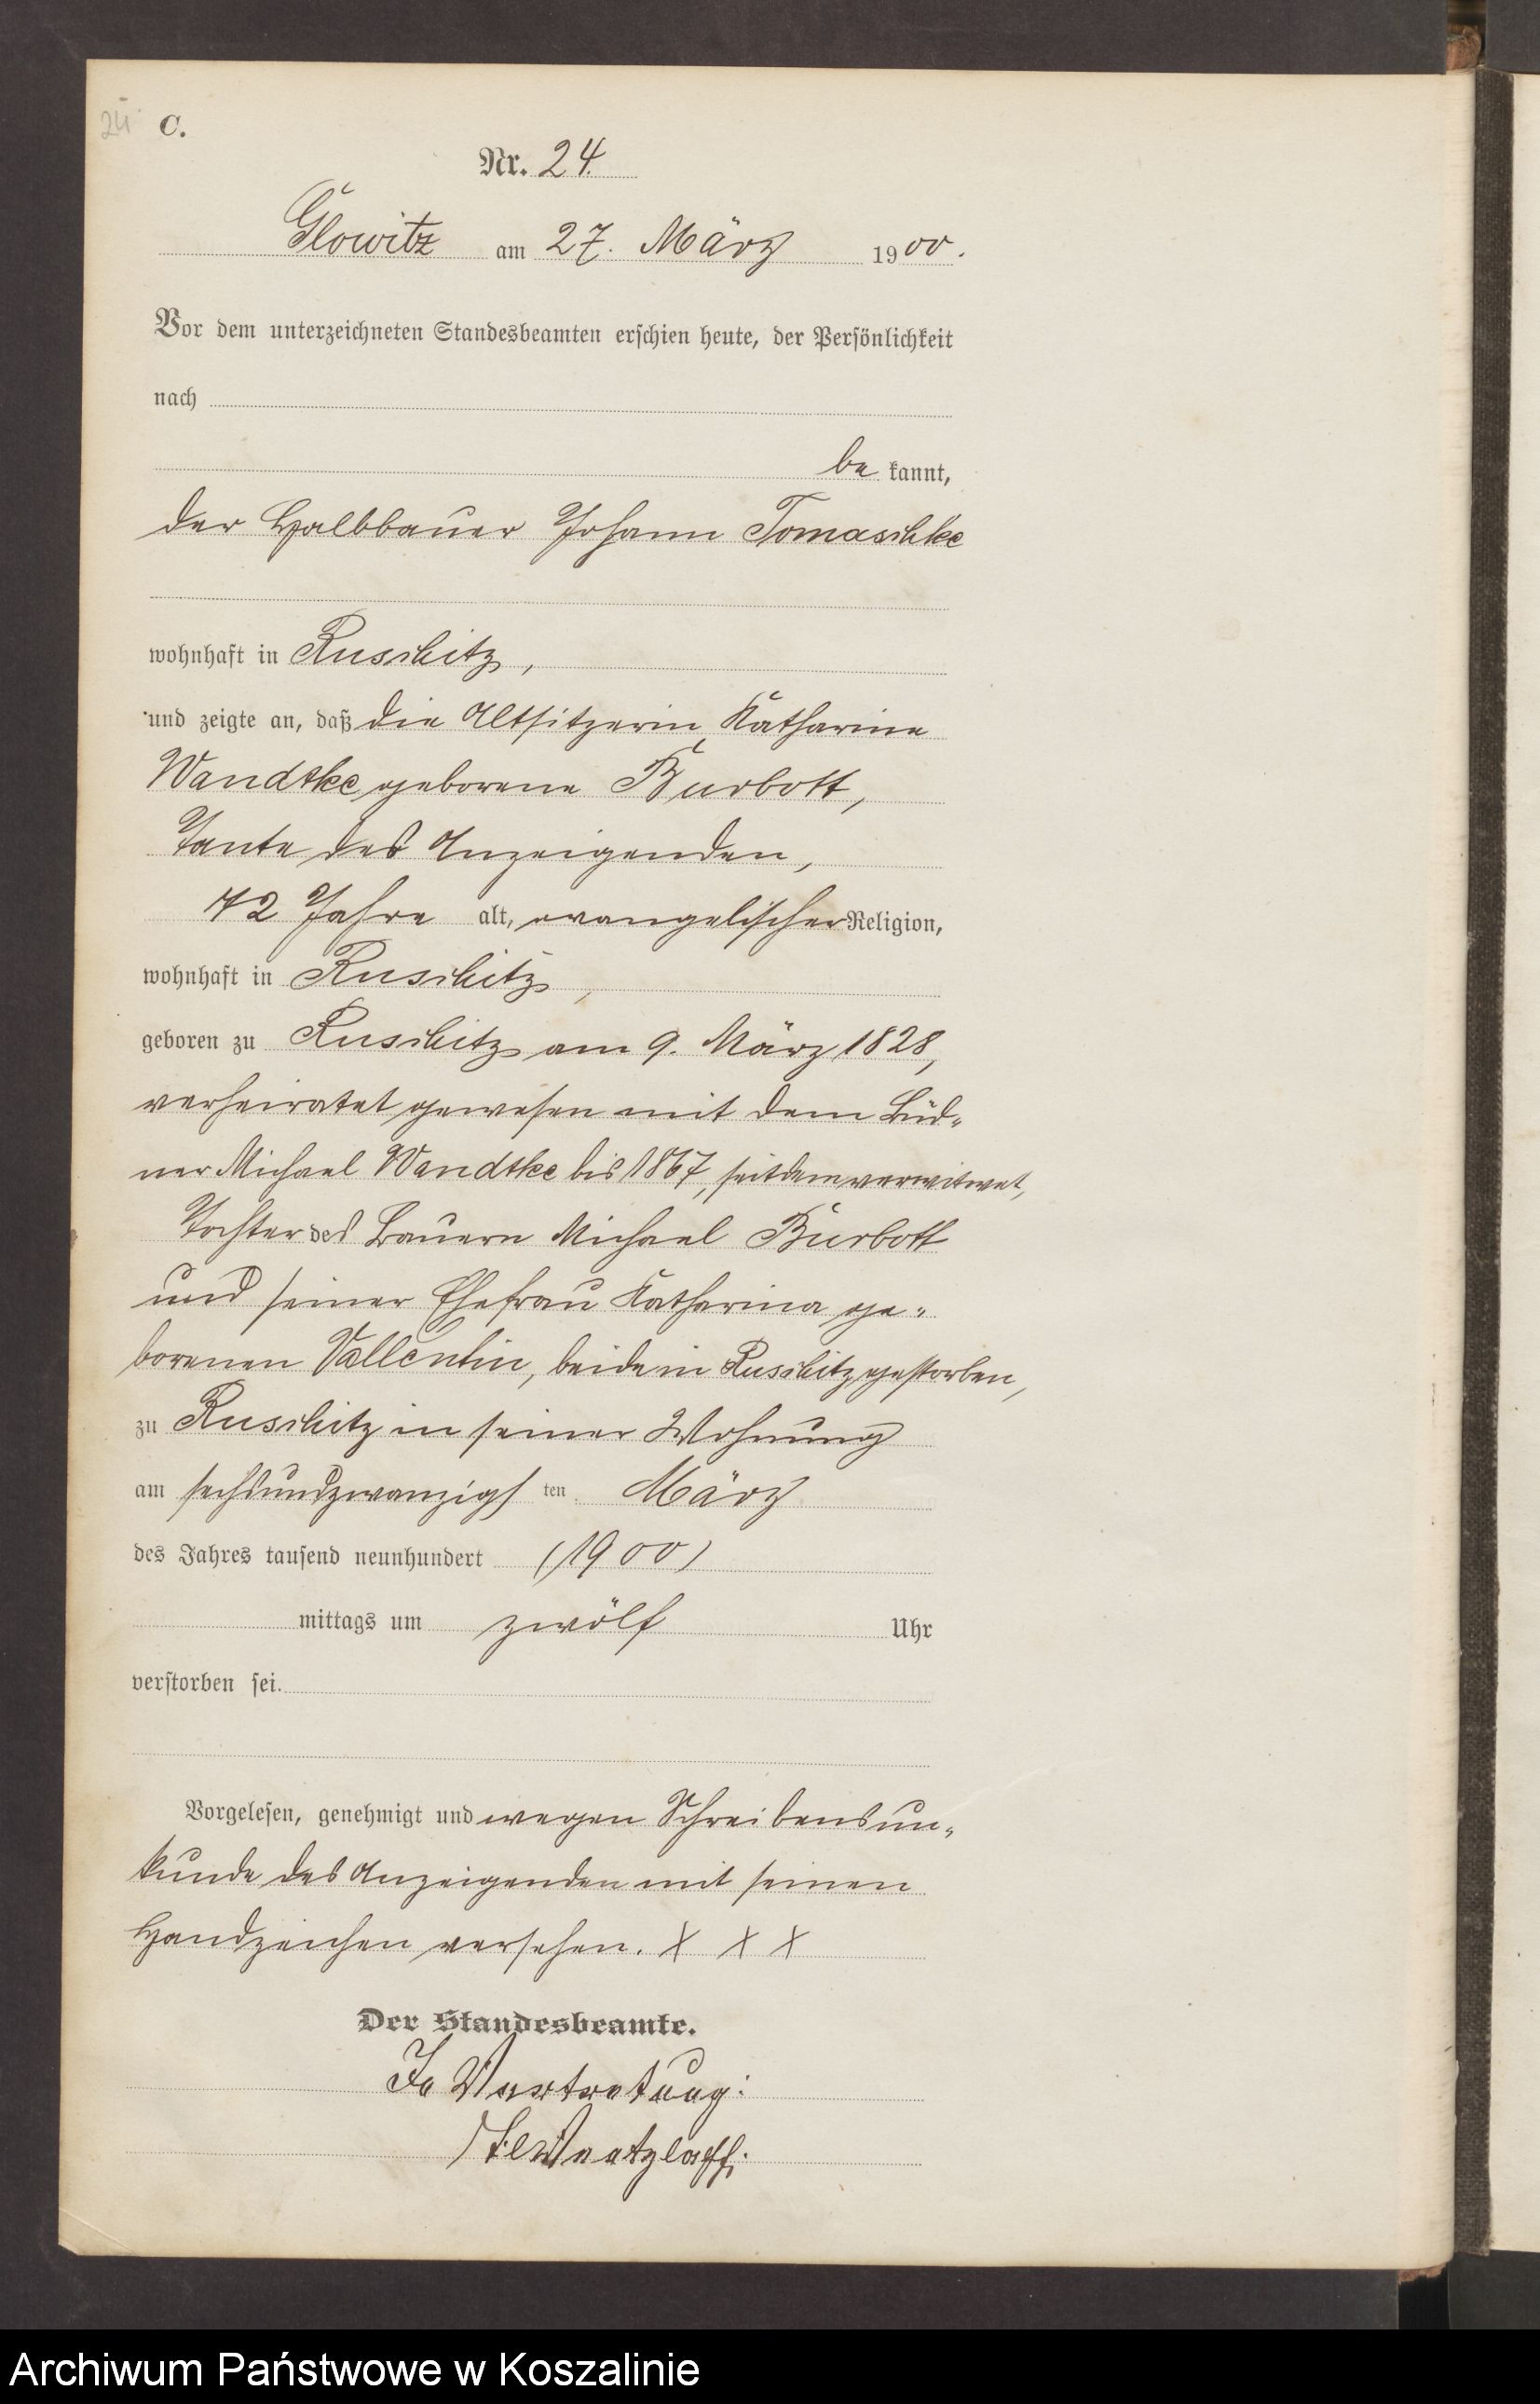 24
C.
Nr. 24.
Glowitz am 27. März 1900.
Vor dem unterzeichneten Standesbeamten erschien heute, der Persönlichkeit
nach
be kannt,
der Halbbauer Johann Tomaschke
wohnhaft in Ruschitz,
und zeigte an, daß die Altsitzerin Katharine
Wandtke geborene Burbott,
Tante des Anzeigenden,
72 Jahre alt, evangelischer Religion,
wohnhaft in Ruschitz,
geboren zu Ruschitz am 9. März 1828,
verheiratet gewesen mit dem Büd-
ner Michael Wandtke bis 1867, seitdem verwitwet,
Tochter des Bauern Michael Burbott
und seiner Ehefrau Katharina ge-
borenen Vallentin, beide in Ruschitz gestorben,
zu Ruschitz in seiner Wohnung
am sechsundzwanzigsten März
des Jahres tausend neunhundert (1900)
mittags um zwölf Uhr
verstorben sei.
Vorgelesen, genehmigt und wegen Schreibensun-
kunde des Anzeigenden mit seinen
Handzeichen versehen. X X X
Der Standesbeamte.
In Vertretung:
Archiwum Państwowe w Koszalinie